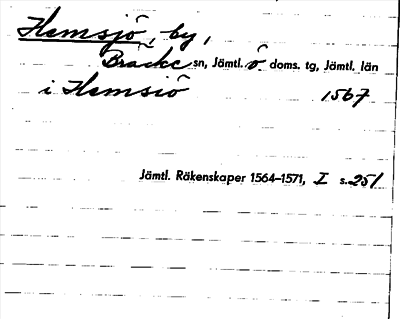 Hemsjö, by,
Bräcke sn, Jämtl. ö. doms. tg, Jämtl. län
i Hemsiö 1567
Jämtl. Räkenskaper 1564–1571, I s. 251